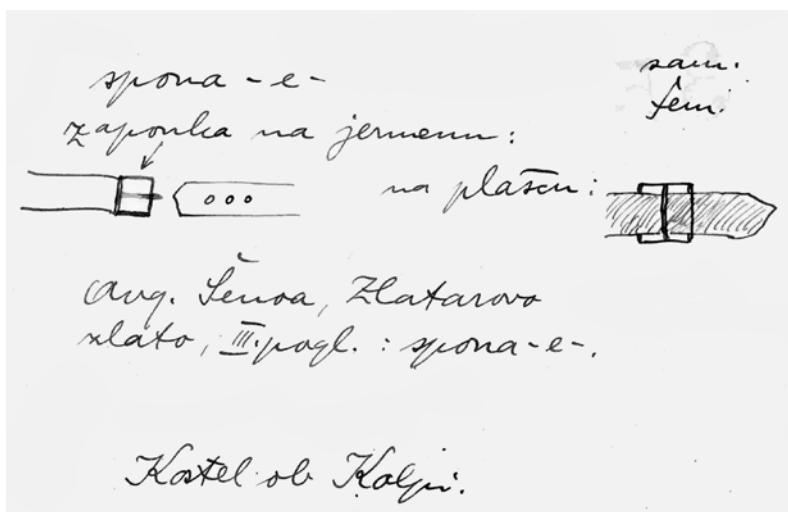 spona -e-
sam.
fem.
zaponka na jermenu:
na plašču:
Avg. Šenoa, Zlatarovo
zlato, III. pogl. : spona-e-.
Kostel ob Kolpi.